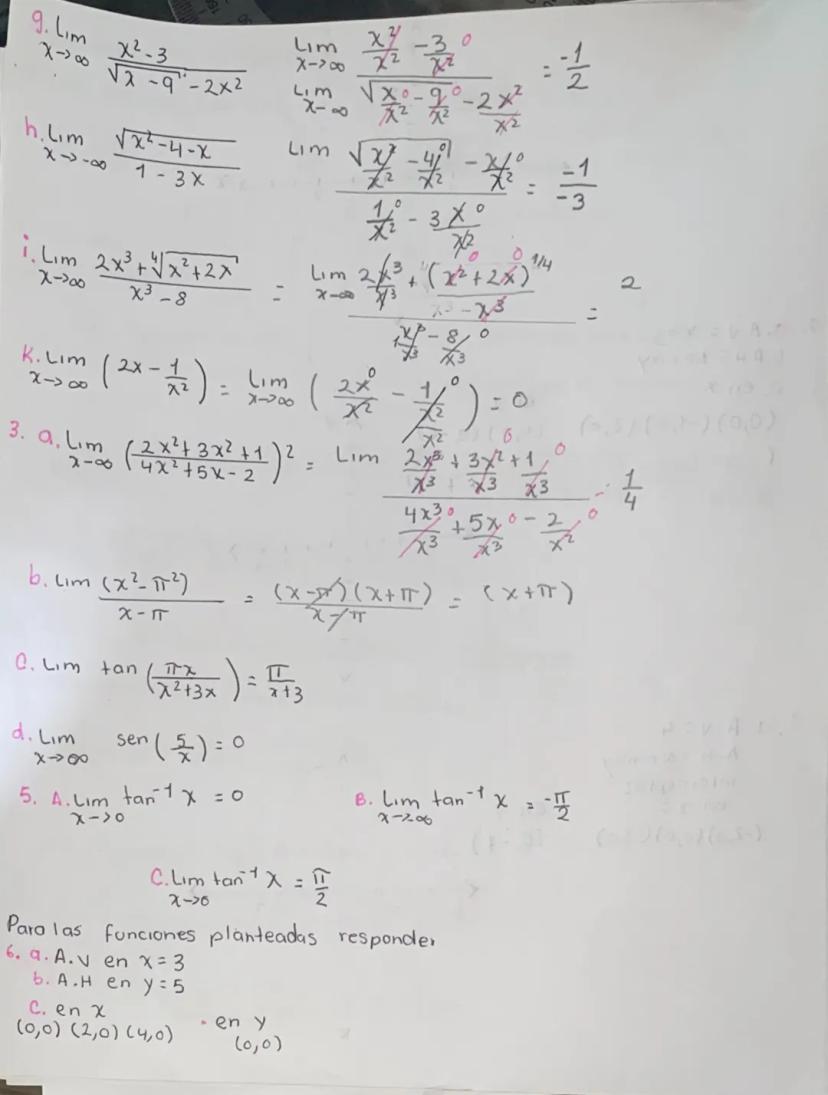 g. Lim x→∞ (x²-3)/(√(x-9) - 2x²)   Lim x→∞ (x²/x² - 3/x² 0)/(Lim x-∞ √(x/x² 0 - 9/x² 0) - 2x²/x²) = -1/2
h. Lim x→-∞ √(x²-4-x)/(1-3x)   Lim (√(x²/x² - 4/x² 0) - x/x² 0)/(1/x² 0 - 3x/x² 0) = -1/-3
i. Lim x→∞ (2x³+∜(x²+2x))/(x³-8) = Lim x-∞ (2x³/x³ + (x² 0+2x 0)^1/4/x³)/(1x³/x³ - 8/x³ 0) = 2
K. Lim x→∞ (2x - 1/x²) = Lim x→∞ (2x 0/x² - 1/x² 0/x²) = 0
3. a. Lim x-∞ ((2x²+3x²+1)/(4x²+5x-2))² = Lim (2x³/x³ + 3x²/x³ 0 + 1/x³ 0)/(4x³ 0/x³ + 5x 0/x³ - 2/x² 0) = 1/4
b. Lim (x²-π²)/(x-π) = (x-π)(x+π)/(x-π) = (x+π)
C. Lim tan (πx/(x²+3x)) = π/(x+3)
d. Lim x→∞ sen(5/x) = 0
5. A. Lim x→0 tan⁻¹ x = 0   B. Lim x→-∞ tan⁻¹ x = -π/2
C. Lim x→0 tan⁻¹ x = π/2
Para las funciones planteadas responder
6. a. A.V en x=3
b. A.H en y=5
C. en x   • en y
(0,0) (2,0) (4,0)   (0,0)